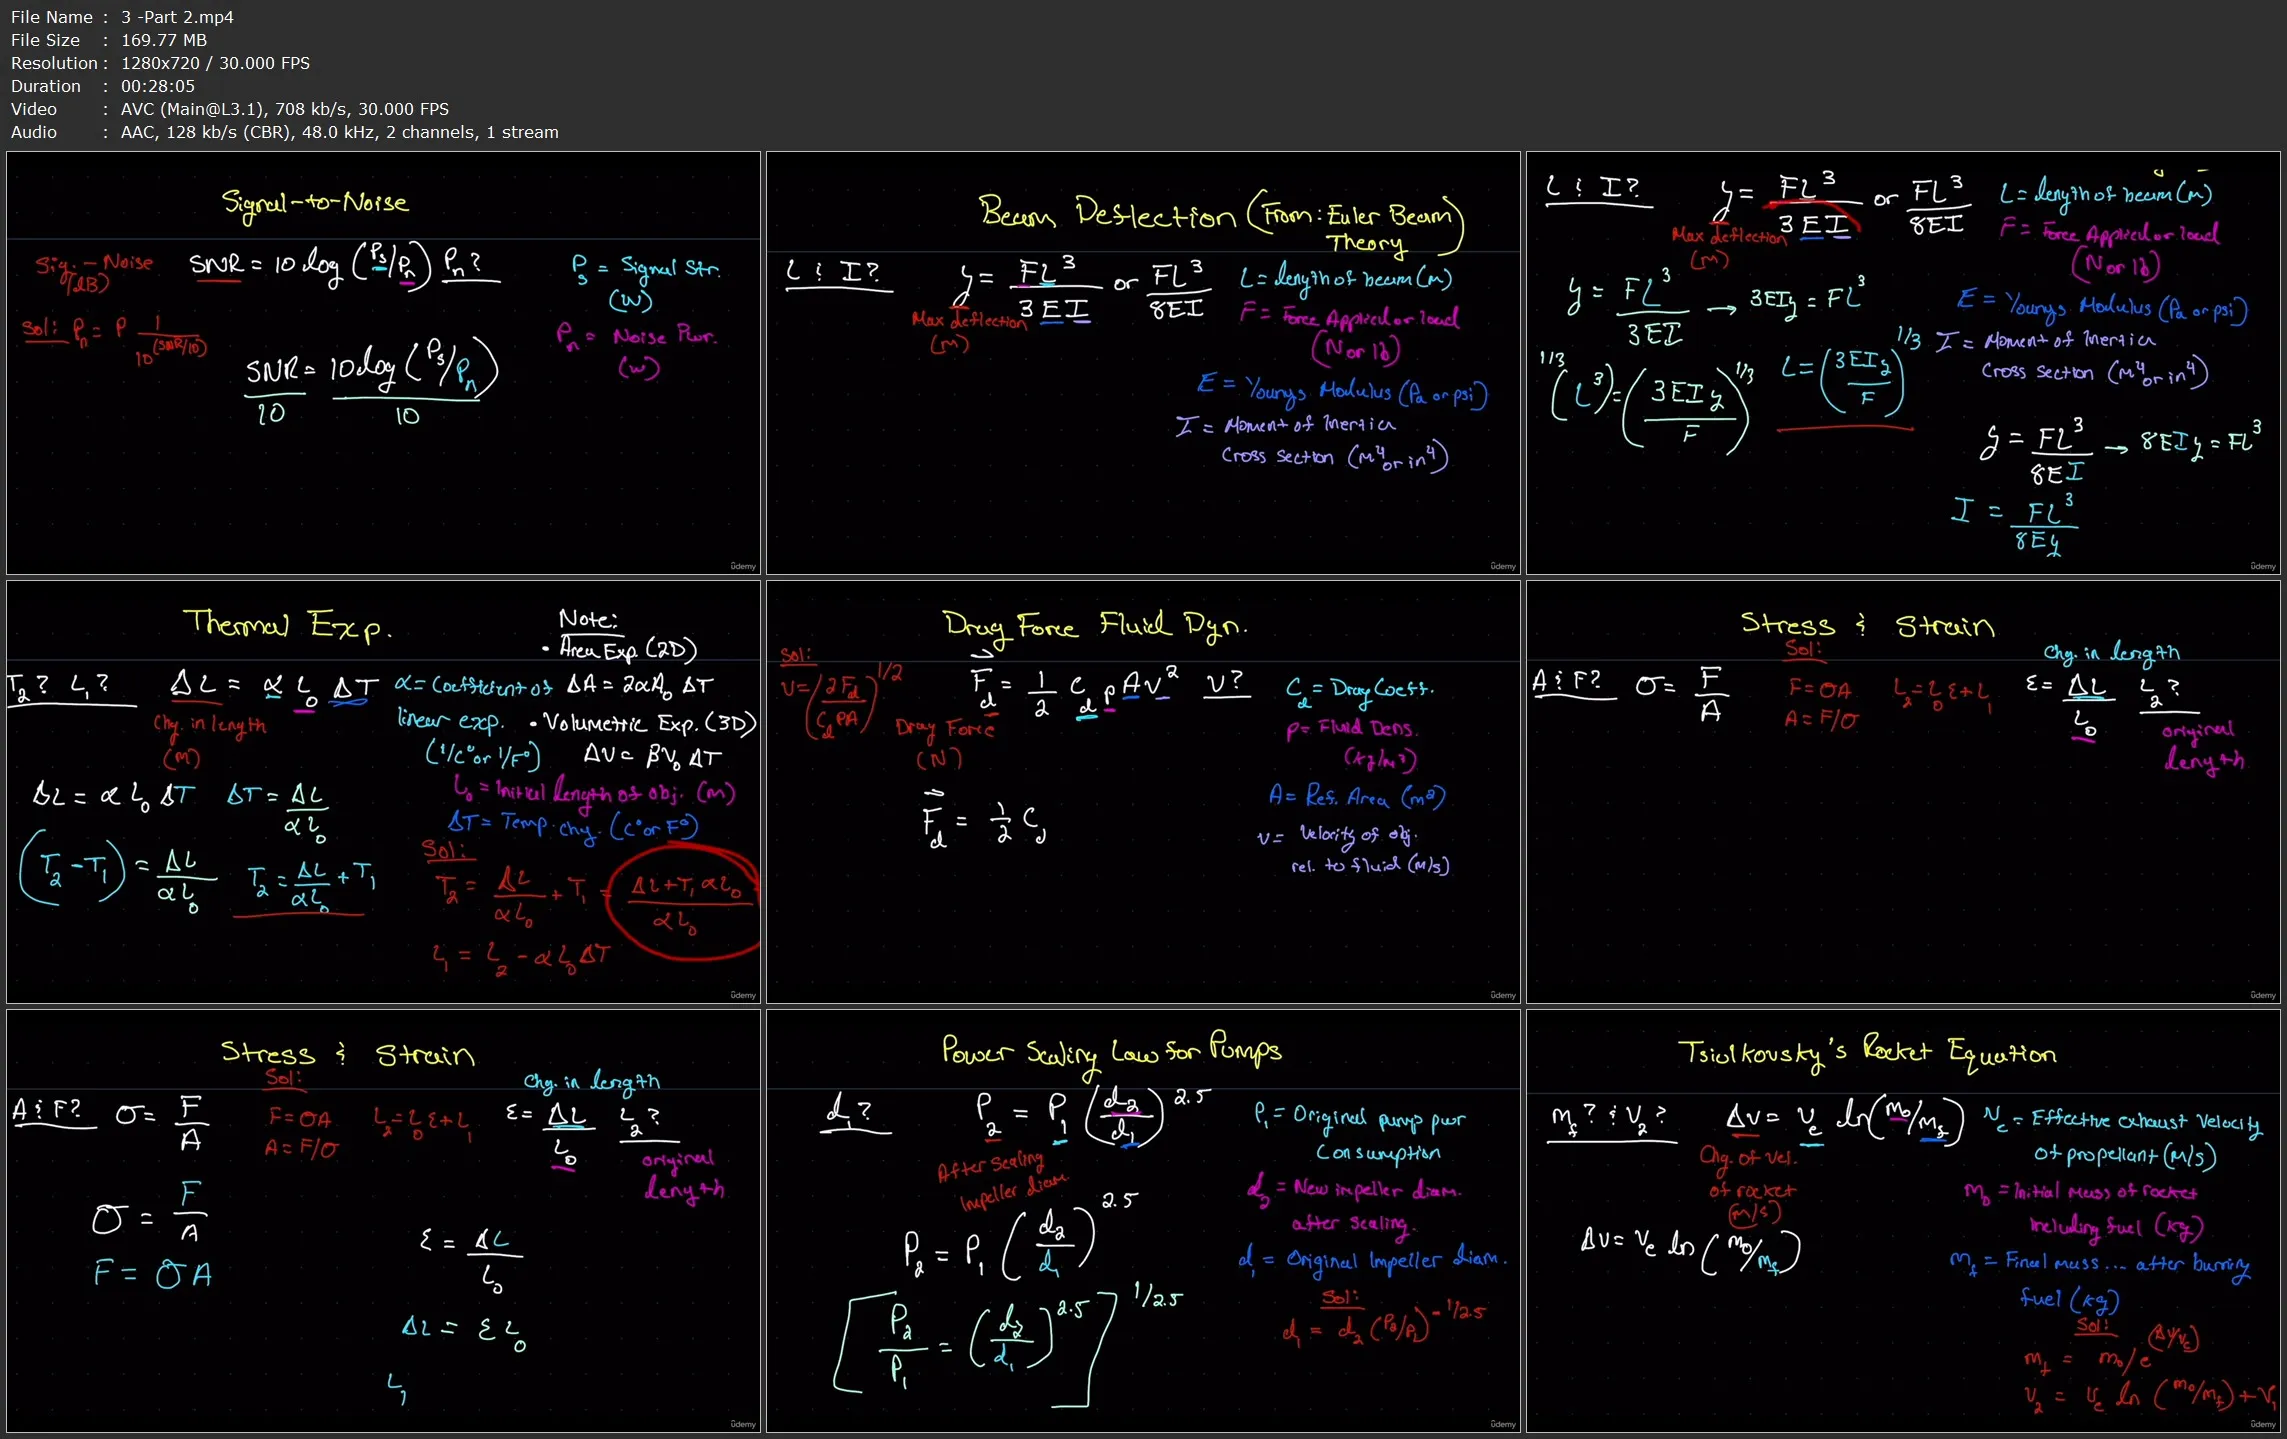 File Name : 3 -Part 2.mp4
File Size : 169.77 MB
Resolution : 1280x720 / 30.000 FPS
Duration : 00:28:05
Video : AVC (Main@L3.1), 708 kb/s, 30.000 FPS
Audio : AAC, 128 kb/s (CBR), 48.0 kHz, 2 channels, 1 stream
Signal-to-Noise
Sig.-Noise (dB)
SNR = 10 log (Ps/Pn) Pn?
Ps = Signal Str. (W)
Sol: Pn = P 1/10^(SNR/10)
Pn = Noise Pwr. (W)
SNR/10 = 10 log (Ps/Pn)/10
ûdemy
Beam Deflection (From: Euler Beam Theory)
L & I?
y = FL³/3EI or FL³/8EI
Max deflection (m)
L = length of beam (m)
F = Force Applied or load (N or lb)
E = Youngs Modulus (Pa or psi)
I = Moment of Inertia
Cross section (m⁴ or in⁴)
ûdemy
L & I?
y = FL³/3EI or FL³/8EI
Max deflection (m)
L = length of beam (m)
F = Force Applied or load (N or lb)
E = Youngs Modulus (Pa or psi)
I = Moment of Inertia
Cross section (m⁴ or in⁴)
y = FL³/3EI → 3EIy = FL³
(L³)^1/3 = (3EIy/F)^1/3
L = (3EIy/F)^1/3
y = FL³/8EI → 8EIy = FL³
I = FL³/8Ey
ûdemy
Thermal Exp.
Note:
• Area Exp. (2D)
ΔA = 2αA₀ ΔT
• Volumetric Exp. (3D)
ΔV = βV₀ ΔT
T₂? L₁?
ΔL = α L₀ ΔT
Chg. in length (m)
α = Coefficient of linear exp. (1/C° or 1/F°)
L₀ = Initial length of obj. (m)
ΔT = Temp. chg. (C° or F°)
ΔL = α L₀ ΔT
ΔT = ΔL/αL₀
(T₂ - T₁) = ΔL/αL₀
T₂ = ΔL/αL₀ + T₁
Sol:
T₂ = ΔL/αL₀ + T₁ = ΔL + T₁αL₀/αL₀
L₁ = L₂ - αL₀ΔT
ûdemy
Drag Force Fluid Dyn.
Sol:
v = (2Fd/CdρA)^1/2
Fd = 1/2 Cd ρ A v² v?
Drag Force (N)
Cd = Drag Coeff.
ρ = Fluid Dens. (kg/m³)
A = Ref. Area (m²)
v = Velocity of obj. rel. to fluid (m/s)
Fd = 1/2 Cd
ûdemy
Stress & Strain
A & F?
σ = F/A
Sol:
F = σA
A = F/σ
L₂ = L₀ε + L₁
Chg. in length
ε = ΔL/L₀ L₂?
original length
ûdemy
Stress & Strain
A & F?
σ = F/A
Sol:
F = σA
A = F/σ
L₂ = L₀ε + L₁
Chg. in length
ε = ΔL/L₀ L₂?
original length
σ = F/A
F = σA
ε = ΔL/L₀
ΔL = εL₀
L₁
ûdemy
Power Scaling Law for Pumps
d₁?
P₂ = P₁ (d₂/d₁)^2.5
After scaling impeller diam.
P₁ = Original pump pwr consumption
d₂ = New impeller diam. after scaling.
d₁ = Original Impeller diam.
P₂ = P₁ (d₂/d₁)^2.5
[P₂/P₁ = (d₂/d₁)^2.5]^1/2.5
Sol:
d₁ = d₂ (P₂/P₁)^-1/2.5
ûdemy
Tsiolkovsky's Rocket Equation
mf? & V₂?
Δv = ve ln(m₀/mf)
Chg. of Vel. of rocket (m/s)
Ve = Effective exhaust Velocity of propellant (m/s)
m₀ = Initial mass of rocket including fuel (kg)
mf = Final mass... after burning fuel (kg)
Δv = ve ln (m₀/mf)
Sol:
mf = m₀/e^(Δv/ve)
v₂ = ve ln (m₀/mf) + v₁
ûdemy